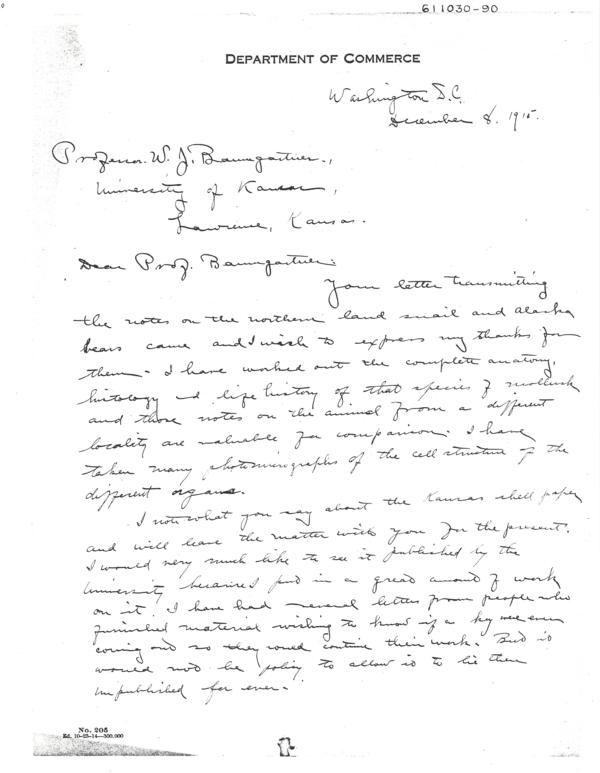 611030-90
DEPARTMENT OF COMMERCE
Washington D.C.
December 8. 1915.
Professor W. J. Baumgartner,
University of Kansas,
Lawrence, Kansas.
Dear Prof. Baumgartner:
Your letter transmitting
the notes on the northern land snail and Alaska
bears came and I wish to express my thanks for
them. I have worked out the complete anatomy,
histology and life history of that species of mollusk
and those notes on the animal from a different
locality are valuable for comparison. I have
taken many photomicrographs of the cell structure of the
different organs.
I note what you say about the Kansas shell paper
and will leave the matter with you for the present.
I would very much like to see it published by the
University because I put in a great amount of work
on it. I have had several letters from people who
furnished material wishing to know if a key was ever
coming out so they could continue their work. But it
would not be policy to allow it to lie there
unpublished for ever.
No. 205
Ed. 10-23-14—300,000